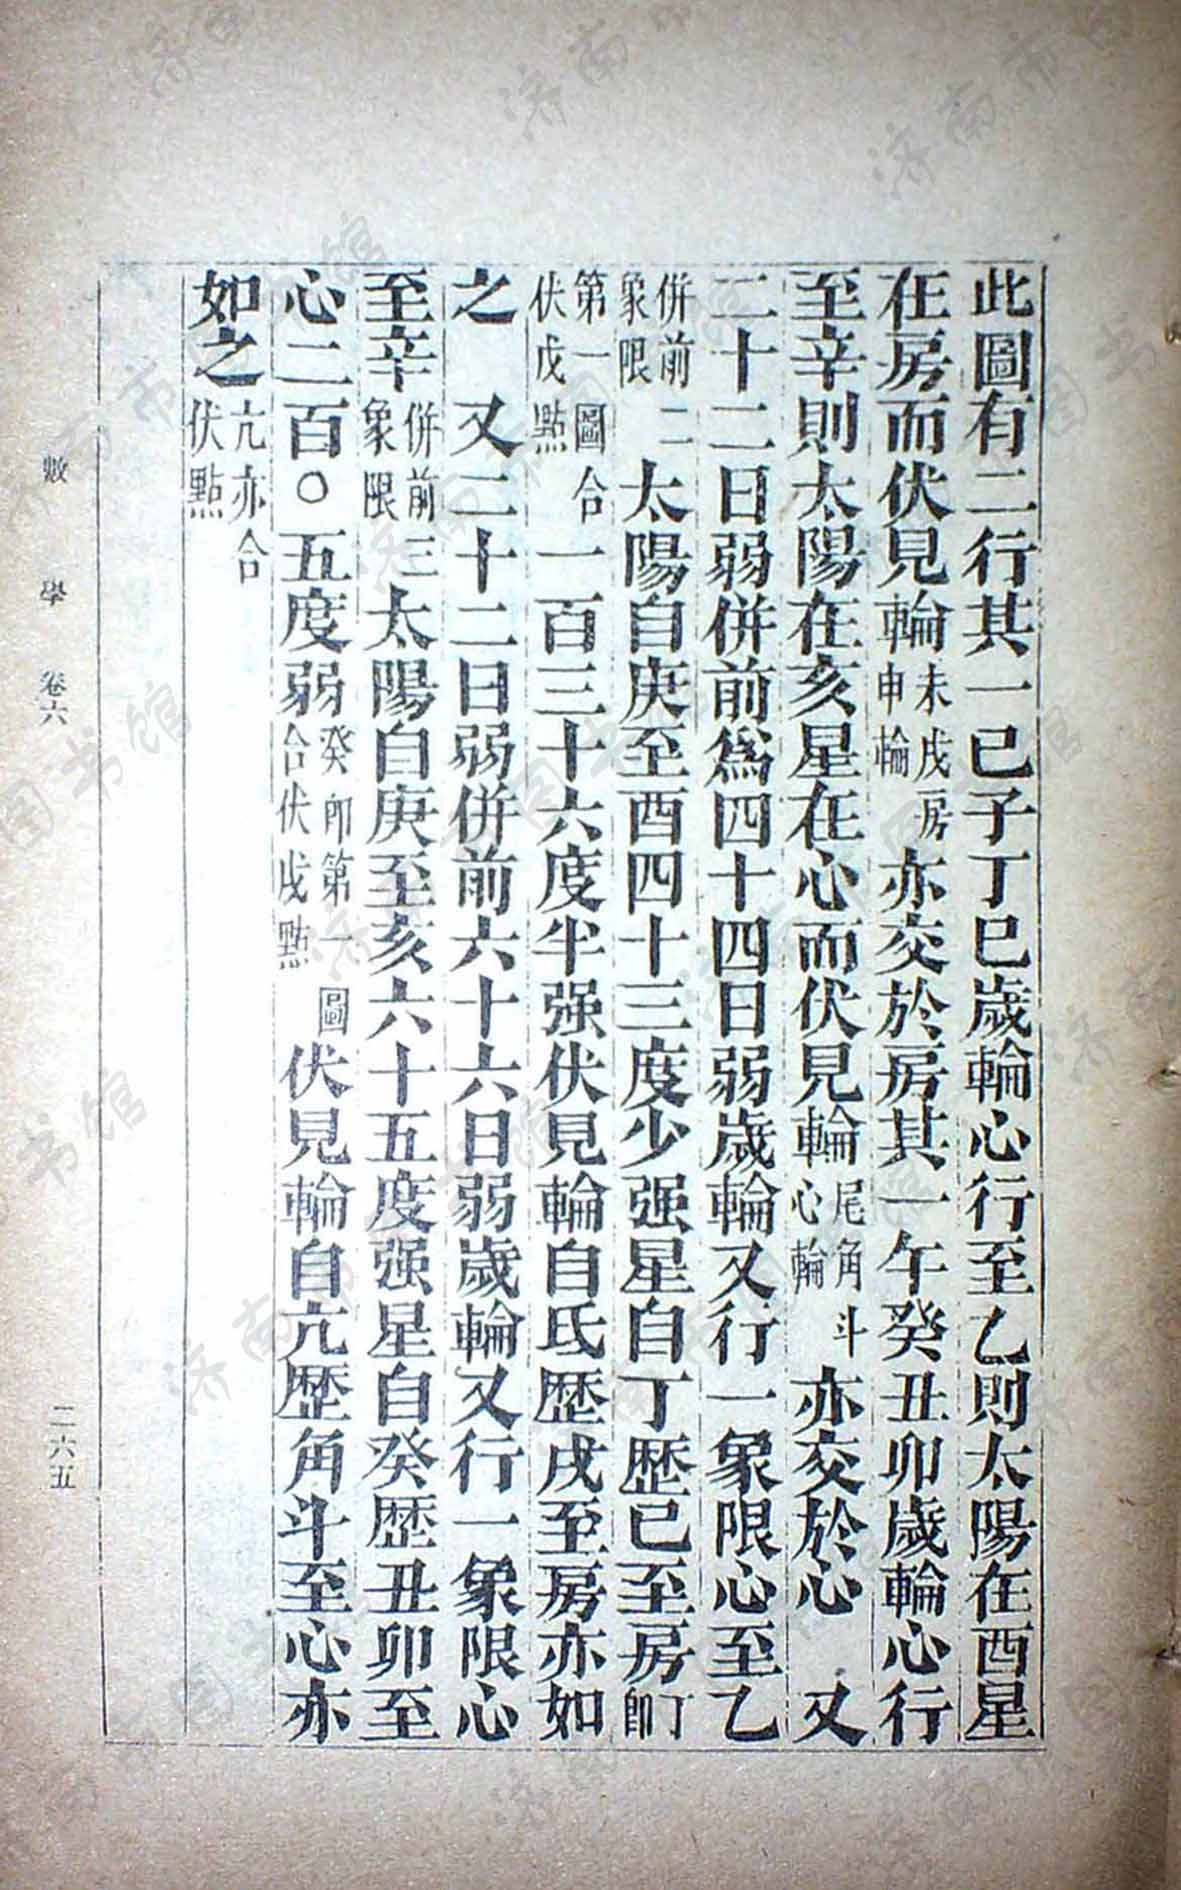 此圖有二行其一已子丁巳歲輪心行至乙則太陽在酉星
在房而伏見輪未戌房申輪亦交於房其一午癸丑卯歲輪心行
至辛則太陽在亥星在心而伏見輪尾角斗心輪亦交於心 又
二十二日弱併前為四十四日弱歲輪又行一象限心至乙
併前二象限太陽自庚至酉四十三度少强星自丁歴巳至房丁即
第一圖合伏戊點一百三十六度半强伏見輪自氏歴戌至房亦如
之 又二十二日弱併前六十六日弱歲輪又行一象限心
至辛併前三象限太陽自庚至亥六十五度强星自癸歴丑卯至
心二百〇五度弱癸即第一圖合伏戊點伏見輪自亢歴角斗至心亦
如之亢亦合伏點
數學 卷六 二六五
济南市图书馆